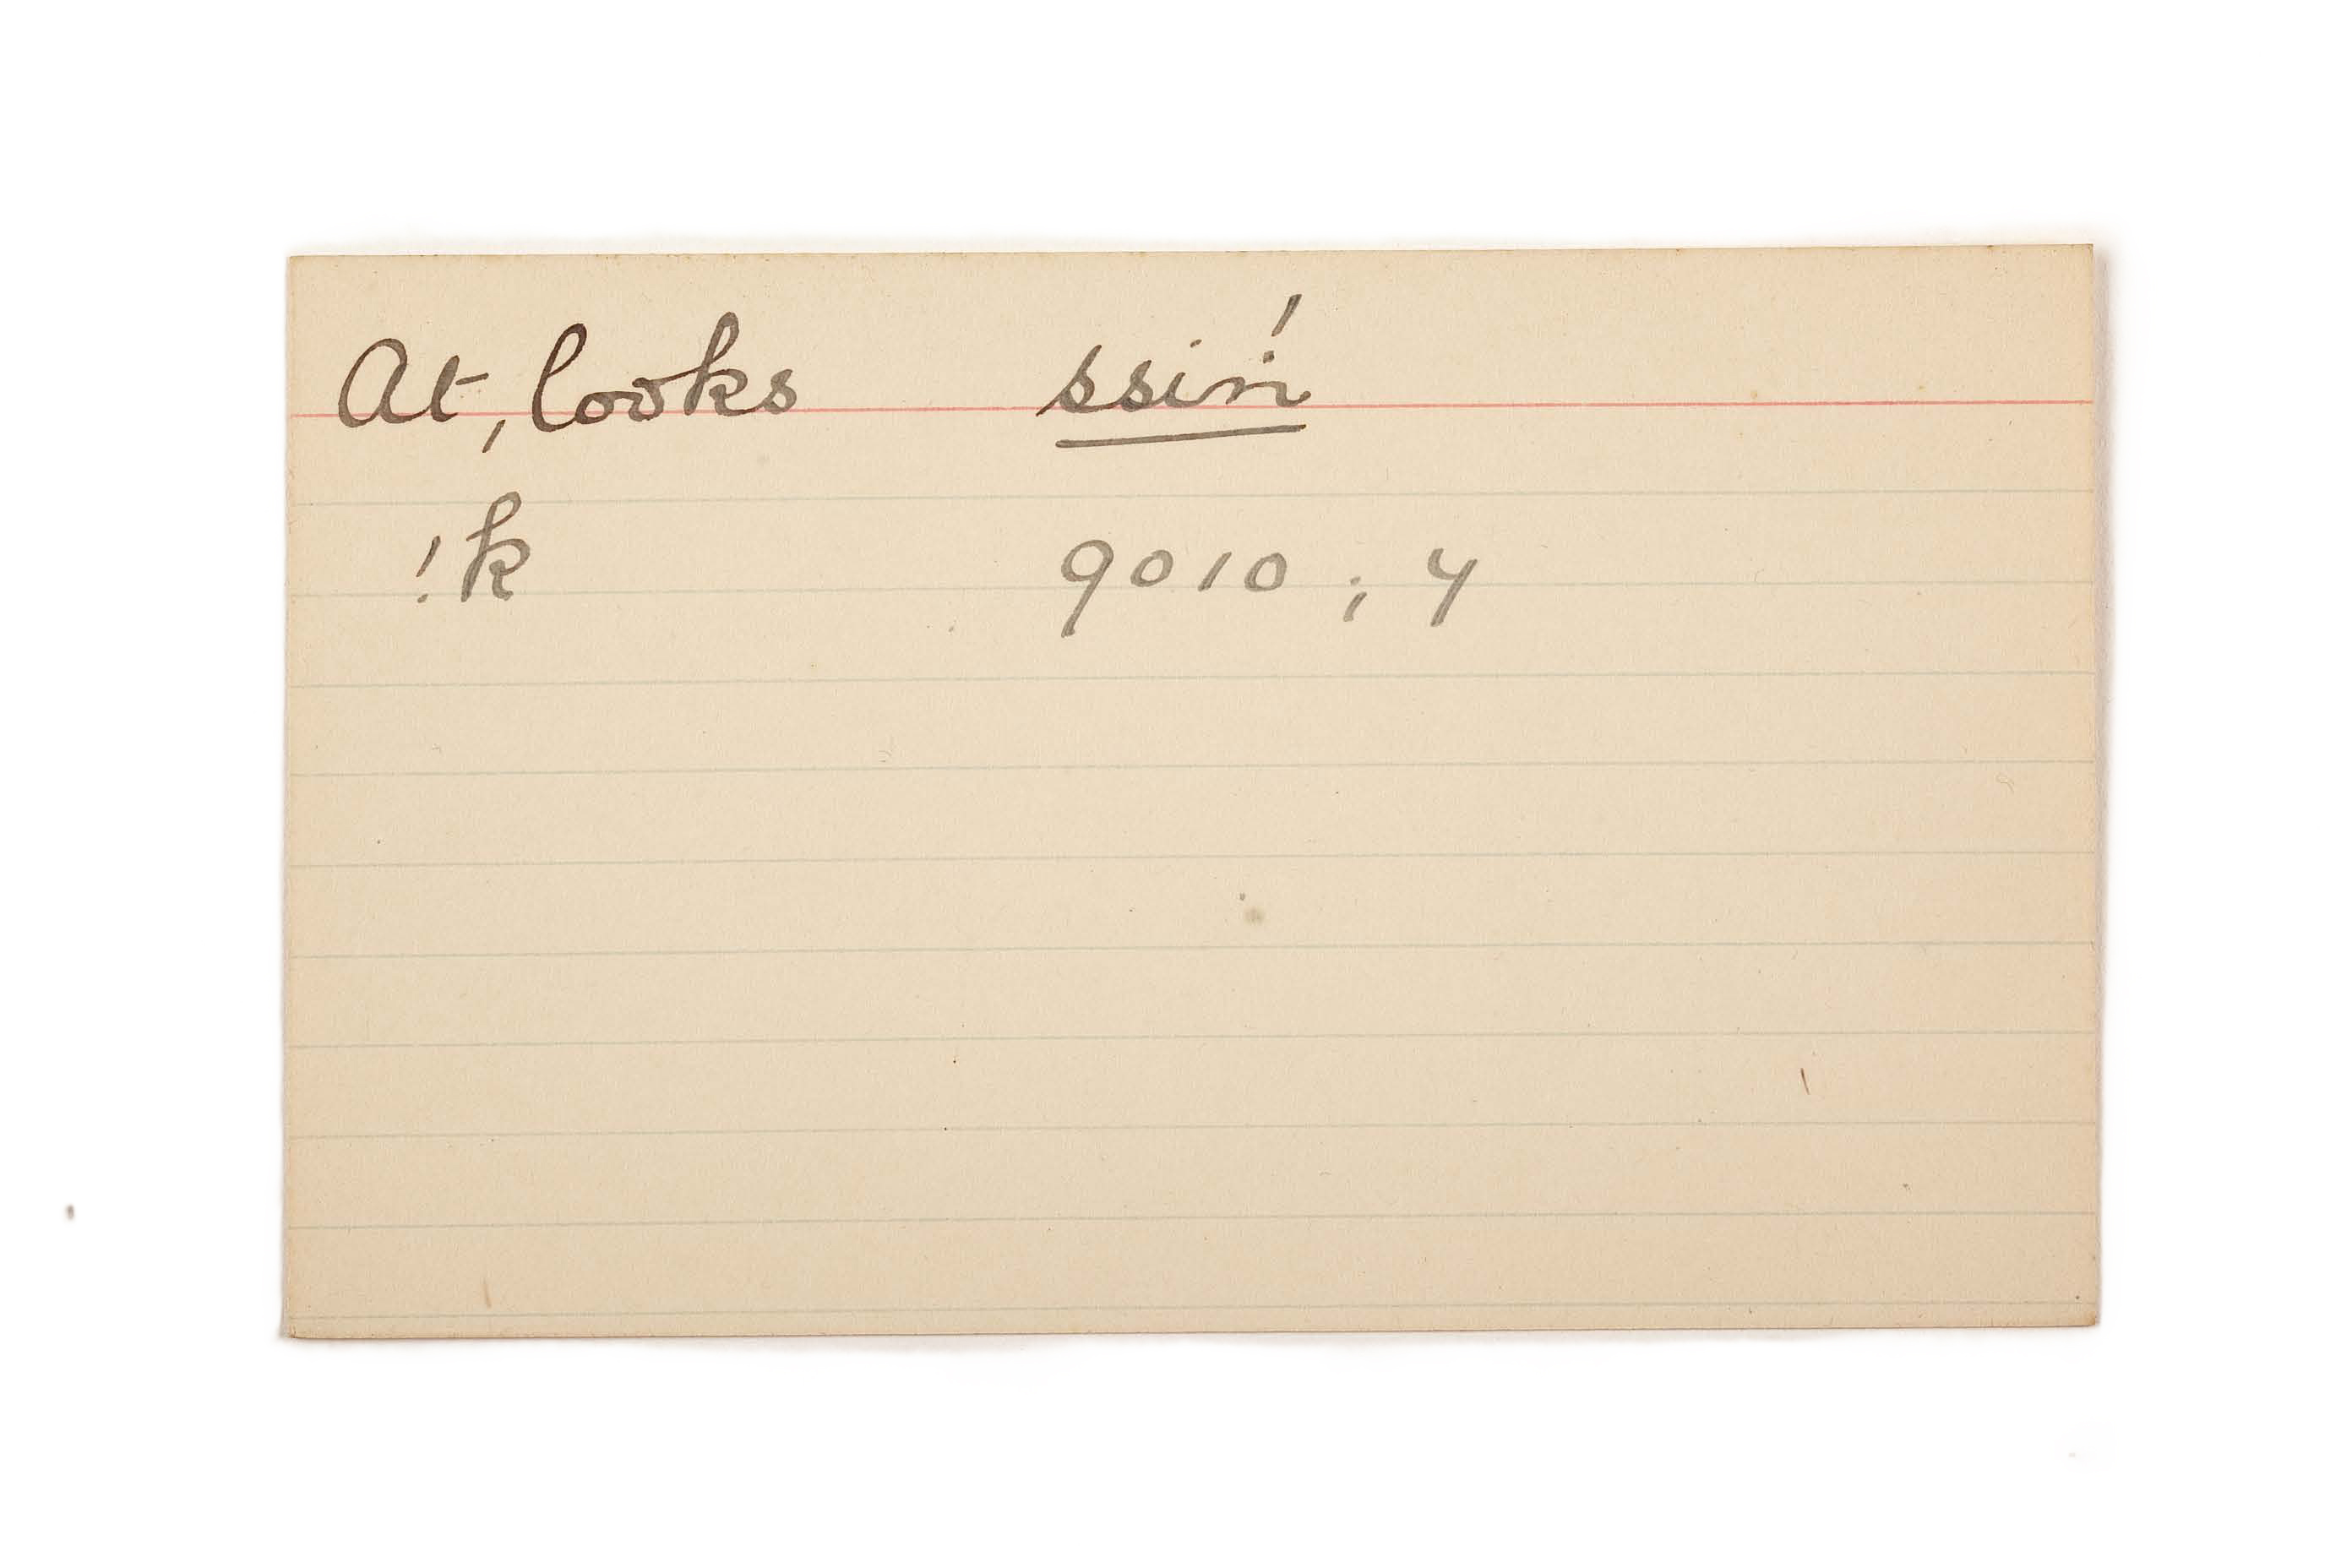 At, looks ssiń
!k 9010 ; y